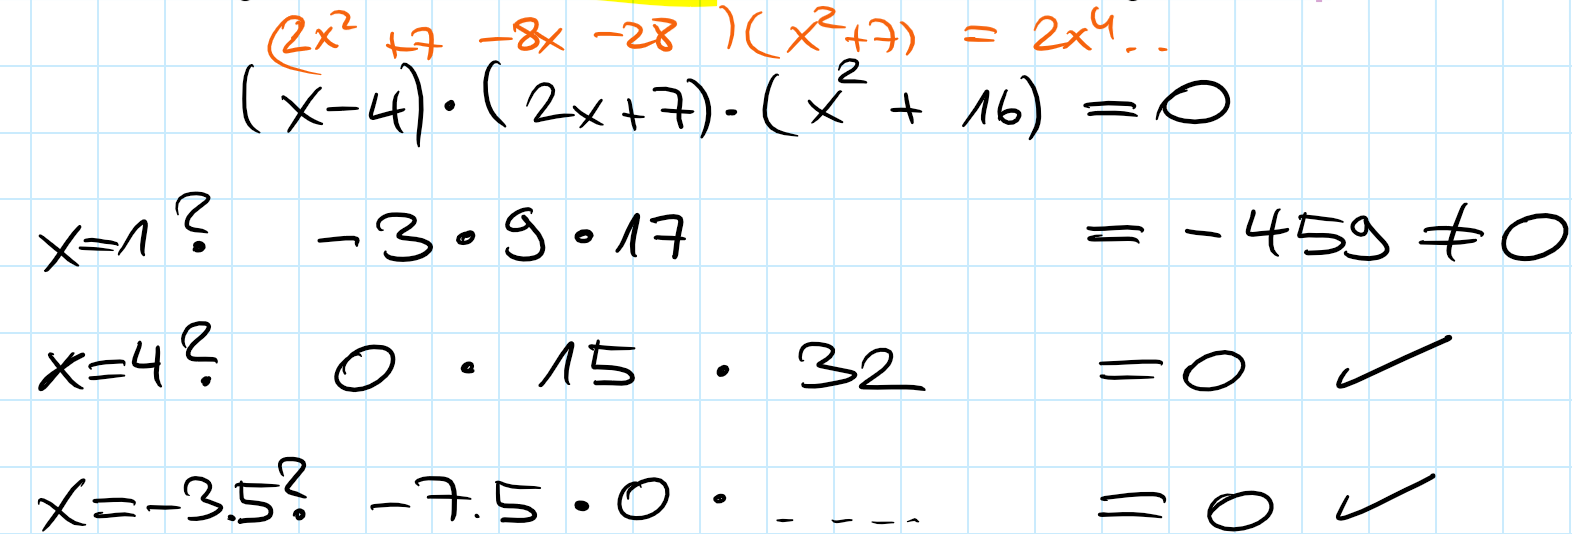 (2x² +7 -8x -28 )(x²+7) = 2x⁴..
(x-4)·(2x+7)·(x² + 16) = 0
x=1? -3·9·17 = -459 ≠ 0
x=4? 0 · 15 · 32 = 0 ✓
x=-3.5? -7.5·0· ---- = 0 ✓